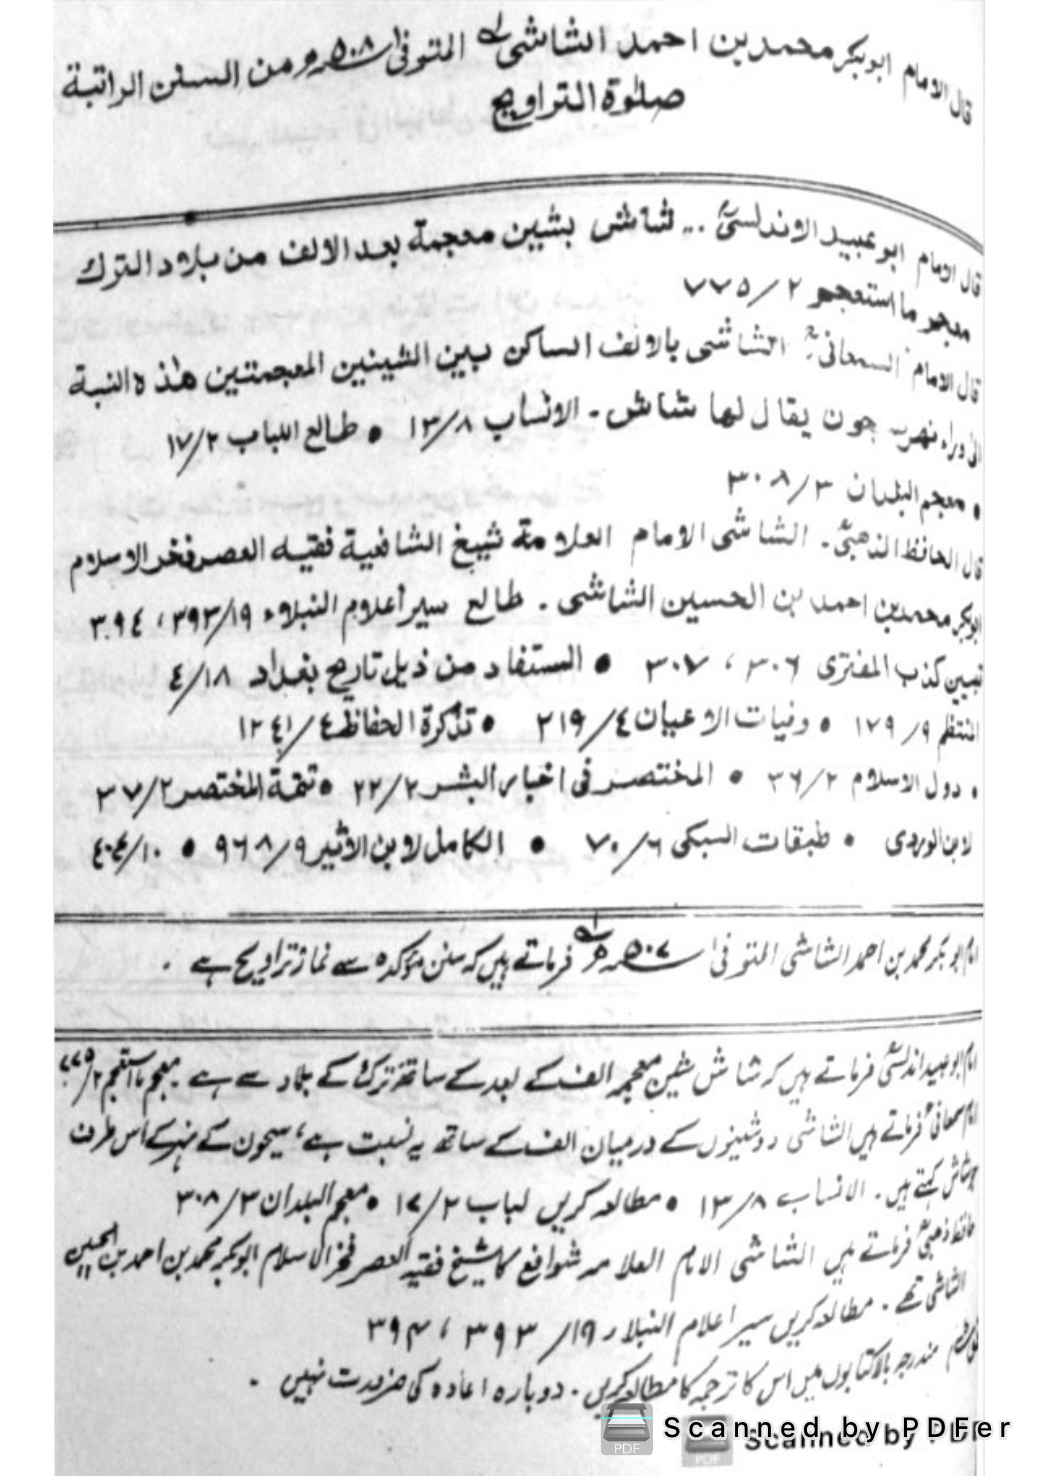 قال الامام ابوبكر محمد بن احمد الشاشی المتوفی ۵۰۸ھ ومن السنن الراتبة
صلوٰة التراويح
قال الامام ابو عبيد الاندلسیؒ ... شاش بشين معجمة بعد الالف من بلاد الترك
معجم ما استعجم ۲/۷۷۵
قال الامام السمعانیؒ الشاشی بالالف الساكن بين الشينين المعجمتين هذه النسبة
الی وراء نهر جون يقال لها شاش ـ الانساب ۸/۱۳ • طالع اللباب ۲/۱۷
• معجم البلدان ۳/۳۰۸
قال الحافظ الذهبیؒ ـ الشاشی الامام العلامة شيخ الشافعية فقيه العصر فخر الاسلام
ابوبكر محمد بن احمد بن الحسين الشاشی ـ طالع سير أعلام النبلاء ۱۹/۳۹۳ ، ۳۹٤
تبيين كذب المفتری ۳۰٦ ، ۳۰۷ • المستفاد من ذيل تاريخ بغداد ۱۸/٤
المنتظم ۹/۱۷۹ • وفيات الاعيان ٤/۲۱۹ • تذكرة الحفاظ ٤/۱۲٤۱
• دول الاسلام ۲/۳٦ • المختصر فی اخبار البشر ۲/۲۲ • تتمة المختصر ۲/۳۷
لابن الوردی • طبقات السبكی ٦/۷۰ • الكامل لابن الاثير ۹/۹٦۸ •
امام ابوبکر محمد بن احمد الشاشی المتوفیٰ ۵۰۷ھ فرماتے ہیں کہ سنن مؤکدہ سے نماز تراویح ہے ۔
امام ابو عبید اندلسیؒ فرماتے ہیں کہ شاش شین معجمہ الف کے بعد کے ساتھ ترک کے بلاد سے ہے ۔ معجم ما استعجم ۲/۷۷۵
امام سمعانیؒ فرماتے ہیں الشاشی دو شینوں کے درمیان الف کے ساتھ یہ نسبت ہے ، سیحون کے نہر کے اس طرف
شاش کہتے ہیں ۔ الانساب ۸/۱۳ • مطالعہ کریں لباب ۲/۱۷ • معجم البلدان ۳/۳۰۸
حافظ ذہبیؒ فرماتے ہیں الشاشی الامام العلامہ شوافع کا شیخ فقیہ العصر فخر الاسلام ابوبکر محمد بن احمد بن الحسین
الشاشی تھے ۔ مطالعہ کریں سیر اعلام النبلاء ۱۹/ ۳۹۳ ، ۳۹۴
مندرجہ بالا کتابوں میں اس کا ترجمہ کا مطالعہ کریں ۔ دوبارہ اعادہ کی ضرورت نہیں ۔
PDF Scanned by PDFer
PDF Scanned by PDF